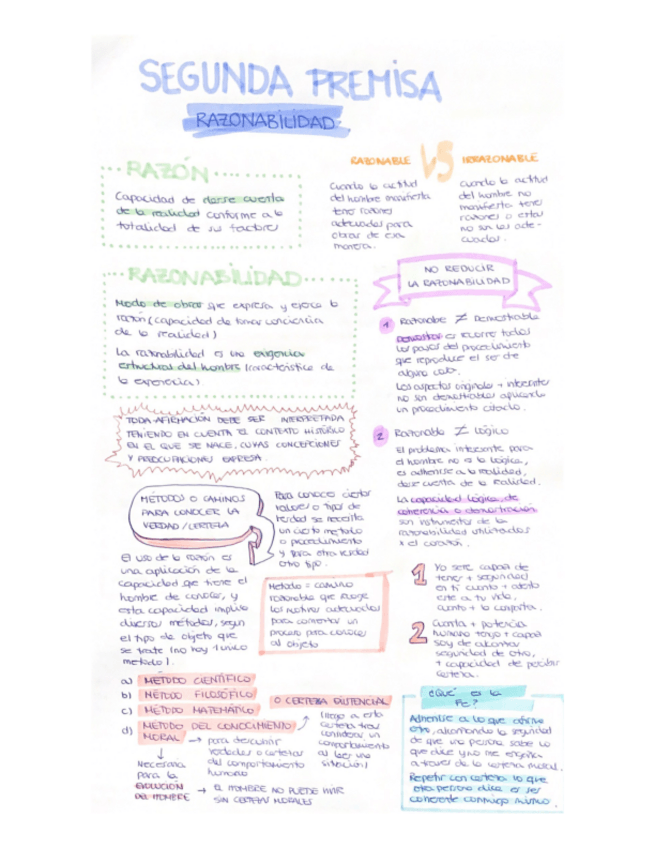 SEGUNDA PREMISA
RAZONABILIDAD
RAZÓN
Capacidad de darse cuenta
de la realidad conforme a la
totalidad de sus factores
RAZONABLE VS IRRAZONABLE
Cuando la actitud
del hombre manifiesta
tener razones
adecuadas para
obrar de esa
manera.
Cuando la actitud
del hombre no
manifiesta tener
razones o estas
no son las ade-
cuadas.
RAZONABILIDAD
Modo de obrar que expresa y ejerce la
razón (capacidad de tomar conciencia
de la realidad)
La razonabilidad es una exigencia
estructural del hombre (característica de
la experiencia)
TODA AFIRMACIÓN DEBE SER INTERPRETADA
TENIENDO EN CUENTA EL CONTEXTO HISTÓRICO
EN EL QUE SE NACE, CUYAS CONCEPCIONES
Y PREOCUPACIONES EXPRESA.
METODOS O CAMINOS
PARA CONOCER LA
VERDAD/CERTEZA
Para conocer ciertos
valores o tipos de
verdad se necesita
un cierto metodo
o procedimiento
y para otra verdad
otro tipo.
El uso de la razón es
una aplicación de la
capacidad que tiene el
hombre de conocer, y
esta capacidad implica
diversos métodos, según
el tipo de objeto que
se trate (no hay 1 unico
metodo).
Metodo = camino
razonable que recoge
los motivos adecuados
para comenzar un
proceso para conocer
al objeto
a) METODO CIENTÍFICO
b) METODO FILOSÓFICO
c) METODO MATEMÁTICO
d) METODO DEL CONOCIMIENTO
MORAL
O CERTEZA EXISTENCIAL
para descubrir
verdades o certezas
del comportamiento
humano
llego a esta
certeza tras
considerar un
comportamiento
al leer una
situación)
Necesaria
para la
EVOLUCION
DEL HOMBRE
EL HOMBRE NO PUEDE VIVIR
SIN CERTEZAS MORALES
NO REDUCIR
LA RAZONABILIDAD
1 Razonable ≠ Demostrable
Demostrar es recorrer todos
los pasos del procedimiento
que reproduce el ser de
alguna cosa.
Los aspectos originales + interesantes
no son demostrables aplicando
un procedimiento citado.
2 Razonable ≠ Lógico
El problema interesante para
el hombre no es la lógica,
es adherirse a la realidad,
darse cuenta de la realidad.
La capacidad lógica, de
coherencia o demostración
son instrumentos de la
razonabilidad utilizados
x el corazón.
1 Yo sere capaz de
tener + seguridad
en ti cuanto + atento
este a tu vida,
cuanto + la comparta.
2 Cuanta + potencia
humana tengo + capaz
soy de alcanzar
seguridad de otro,
+ capacidad de percibir
certeza.
¿Qué es la
Fe?
Adherirse a lo que afirma
otro, alcanzando la seguridad
de que una persona sabe lo
que dice y no me engaña
a traves de la certeza moral.
Repetir con certeza lo que
otra persona dice es ser
coherente conmigo mismo.